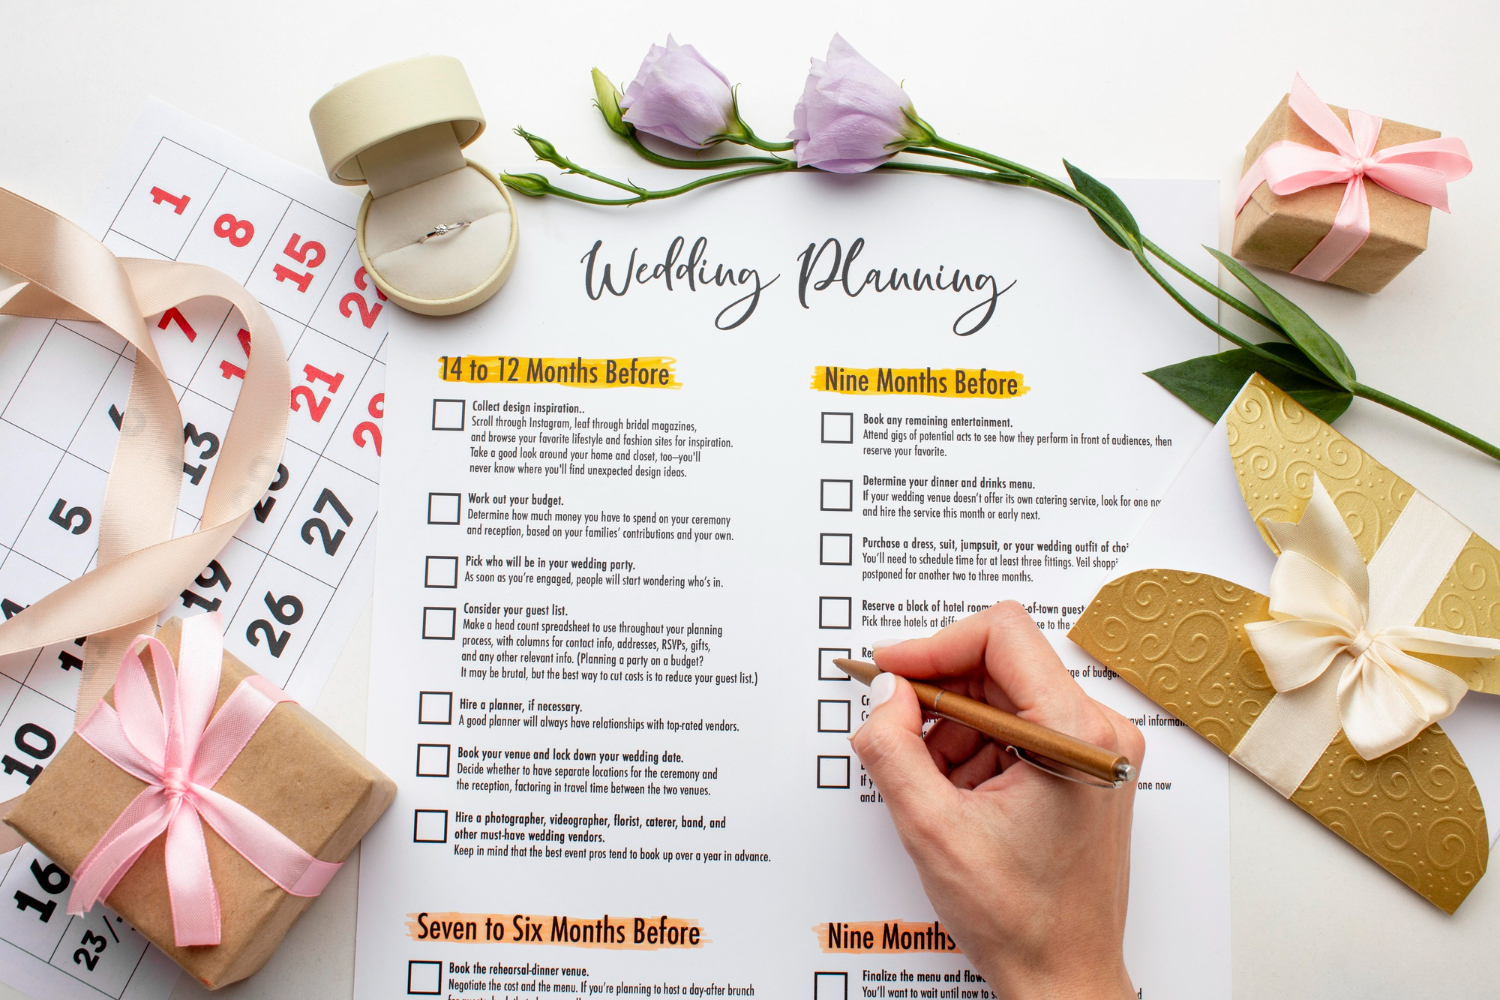 Wedding Planning
14 to 12 Months Before
Collect design inspiration..
Scroll through Instagram, leaf through bridal magazines,
and browse your favorite lifestyle and fashion sites for inspiration.
Take a good look around your home and closet, too—you'll
never know where you'll find unexpected design ideas.
Work out your budget.
Determine how much money you have to spend on your ceremony
and reception, based on your families' contributions and your own.
Pick who will be in your wedding party.
As soon as you're engaged, people will start wondering who's in.
Consider your guest list.
Make a head count spreadsheet to use throughout your planning
process, with columns for contact info, addresses, RSVPs, gifts,
and any other relevant info. (Planning a party on a budget?
It may be brutal, but the best way to cut costs is to reduce your guest list.)
Hire a planner, if necessary.
A good planner will always have relationships with top-rated vendors.
Book your venue and lock down your wedding date.
Decide whether to have separate locations for the ceremony and
the reception, factoring in travel time between the two venues.
Hire a photographer, videographer, florist, caterer, band, and
other must-have wedding vendors.
Keep in mind that the best event pros tend to book up over a year in advance.
Seven to Six Months Before
Book the rehearsal-dinner venue.
Negotiate the cost and the menu. If you're planning to host a day-after brunch
Nine Months Before
Book any remaining entertainment.
Attend gigs of potential acts to see how they perform in front of audiences, then
reserve your favorite.
Determine your dinner and drinks menu.
If your wedding venue doesn't offer its own catering service, look for one
and hire the service this month or early next.
Purchase a dress, suit, jumpsuit, or your wedding outfit of
You'll need to schedule time for at least three fittings. Veil
postponed for another two to three months.
Reserve a block of hotel
Pick three hotels at
to the
of
one now
Nine Months
Finalize the menu and
You'll want to wait until now to
1
8
15
7
21
6
13
27
5
19
26
10
16
23/